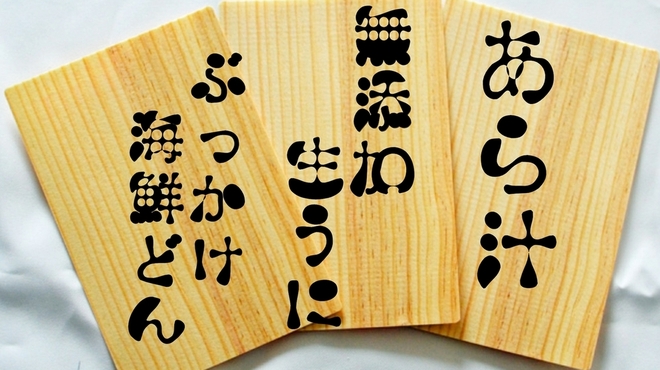 あら汁
無添加
生うに
ぶっかけ
海鮮どん